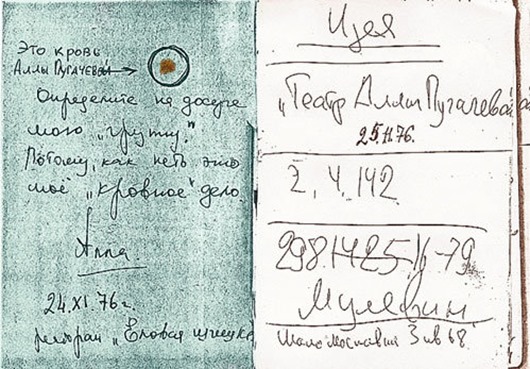 Это кровь
Аллы Пугачевой
Определите на досуге
мою „группу".
Потому, как петь это
моё „кровное" дело.
Алла
24.XI.76г.
ресторан „Еловая шишка
Идея
„Театр Аллы Пугачевой
25.11.76.
2, 4. 142
298.14-25. -79
3 кв 68